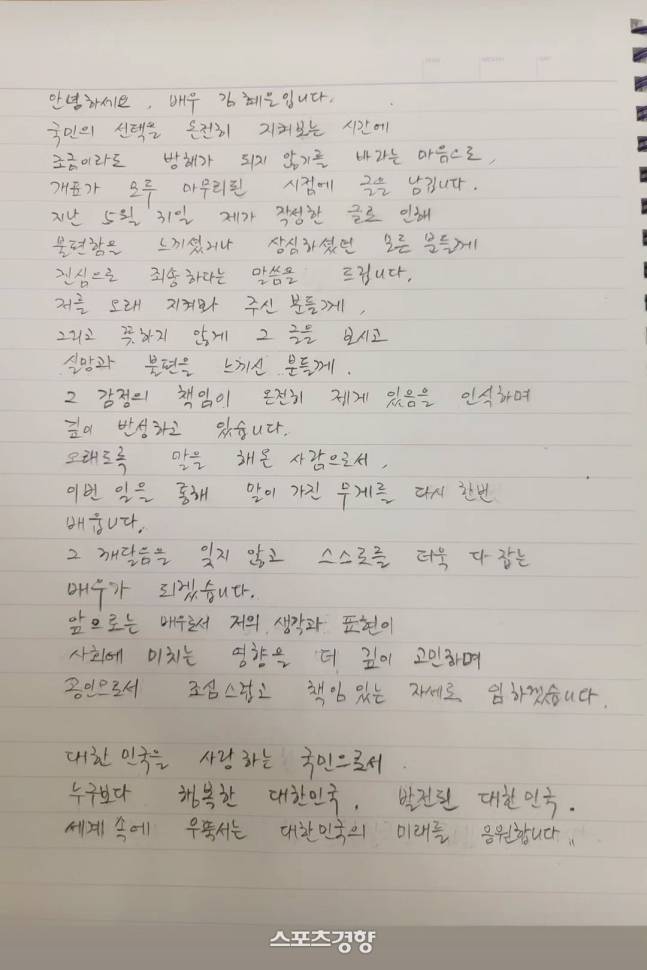 안녕하세요, 배우 김혜은입니다.
국민의 선택을 온전히 지켜보는 시간에
조금이라도 방해가 되지 않기를 바라는 마음으로,
개표가 모두 마무리된 시점에 글을 남깁니다.
지난 5월 31일 제가 작성한 글로 인해
불편함을 느끼셨거나 상심하셨던 모든 분들께
진심으로 죄송하다는 말씀을 드립니다.
저를 오래 지켜봐 주신 분들께,
그리고 뜻하지 않게 그 글을 보시고
실망과 불편을 느끼신 분들께.
그 감정의 책임이 온전히 제게 있음을 인식하며
깊이 반성하고 있습니다.
오래도록 말을 해온 사람으로서,
이번 일을 통해 말이 가진 무게를 다시 한번
배웁니다.
그 깨달음을 잊지 않고 스스로를 더욱 다잡는
배우가 되겠습니다.
앞으로는 배우로서 저의 생각과 표현이
사회에 미치는 영향을 더 깊이 고민하며
공인으로서 조심스럽고 책임있는 자세로 임하겠습니다.
대한민국을 사랑하는 국민으로서
누구보다 행복한 대한민국, 발전된 대한민국.
세계 속에 우뚝서는 대한민국의 미래를 응원합니다.,
스포츠경향